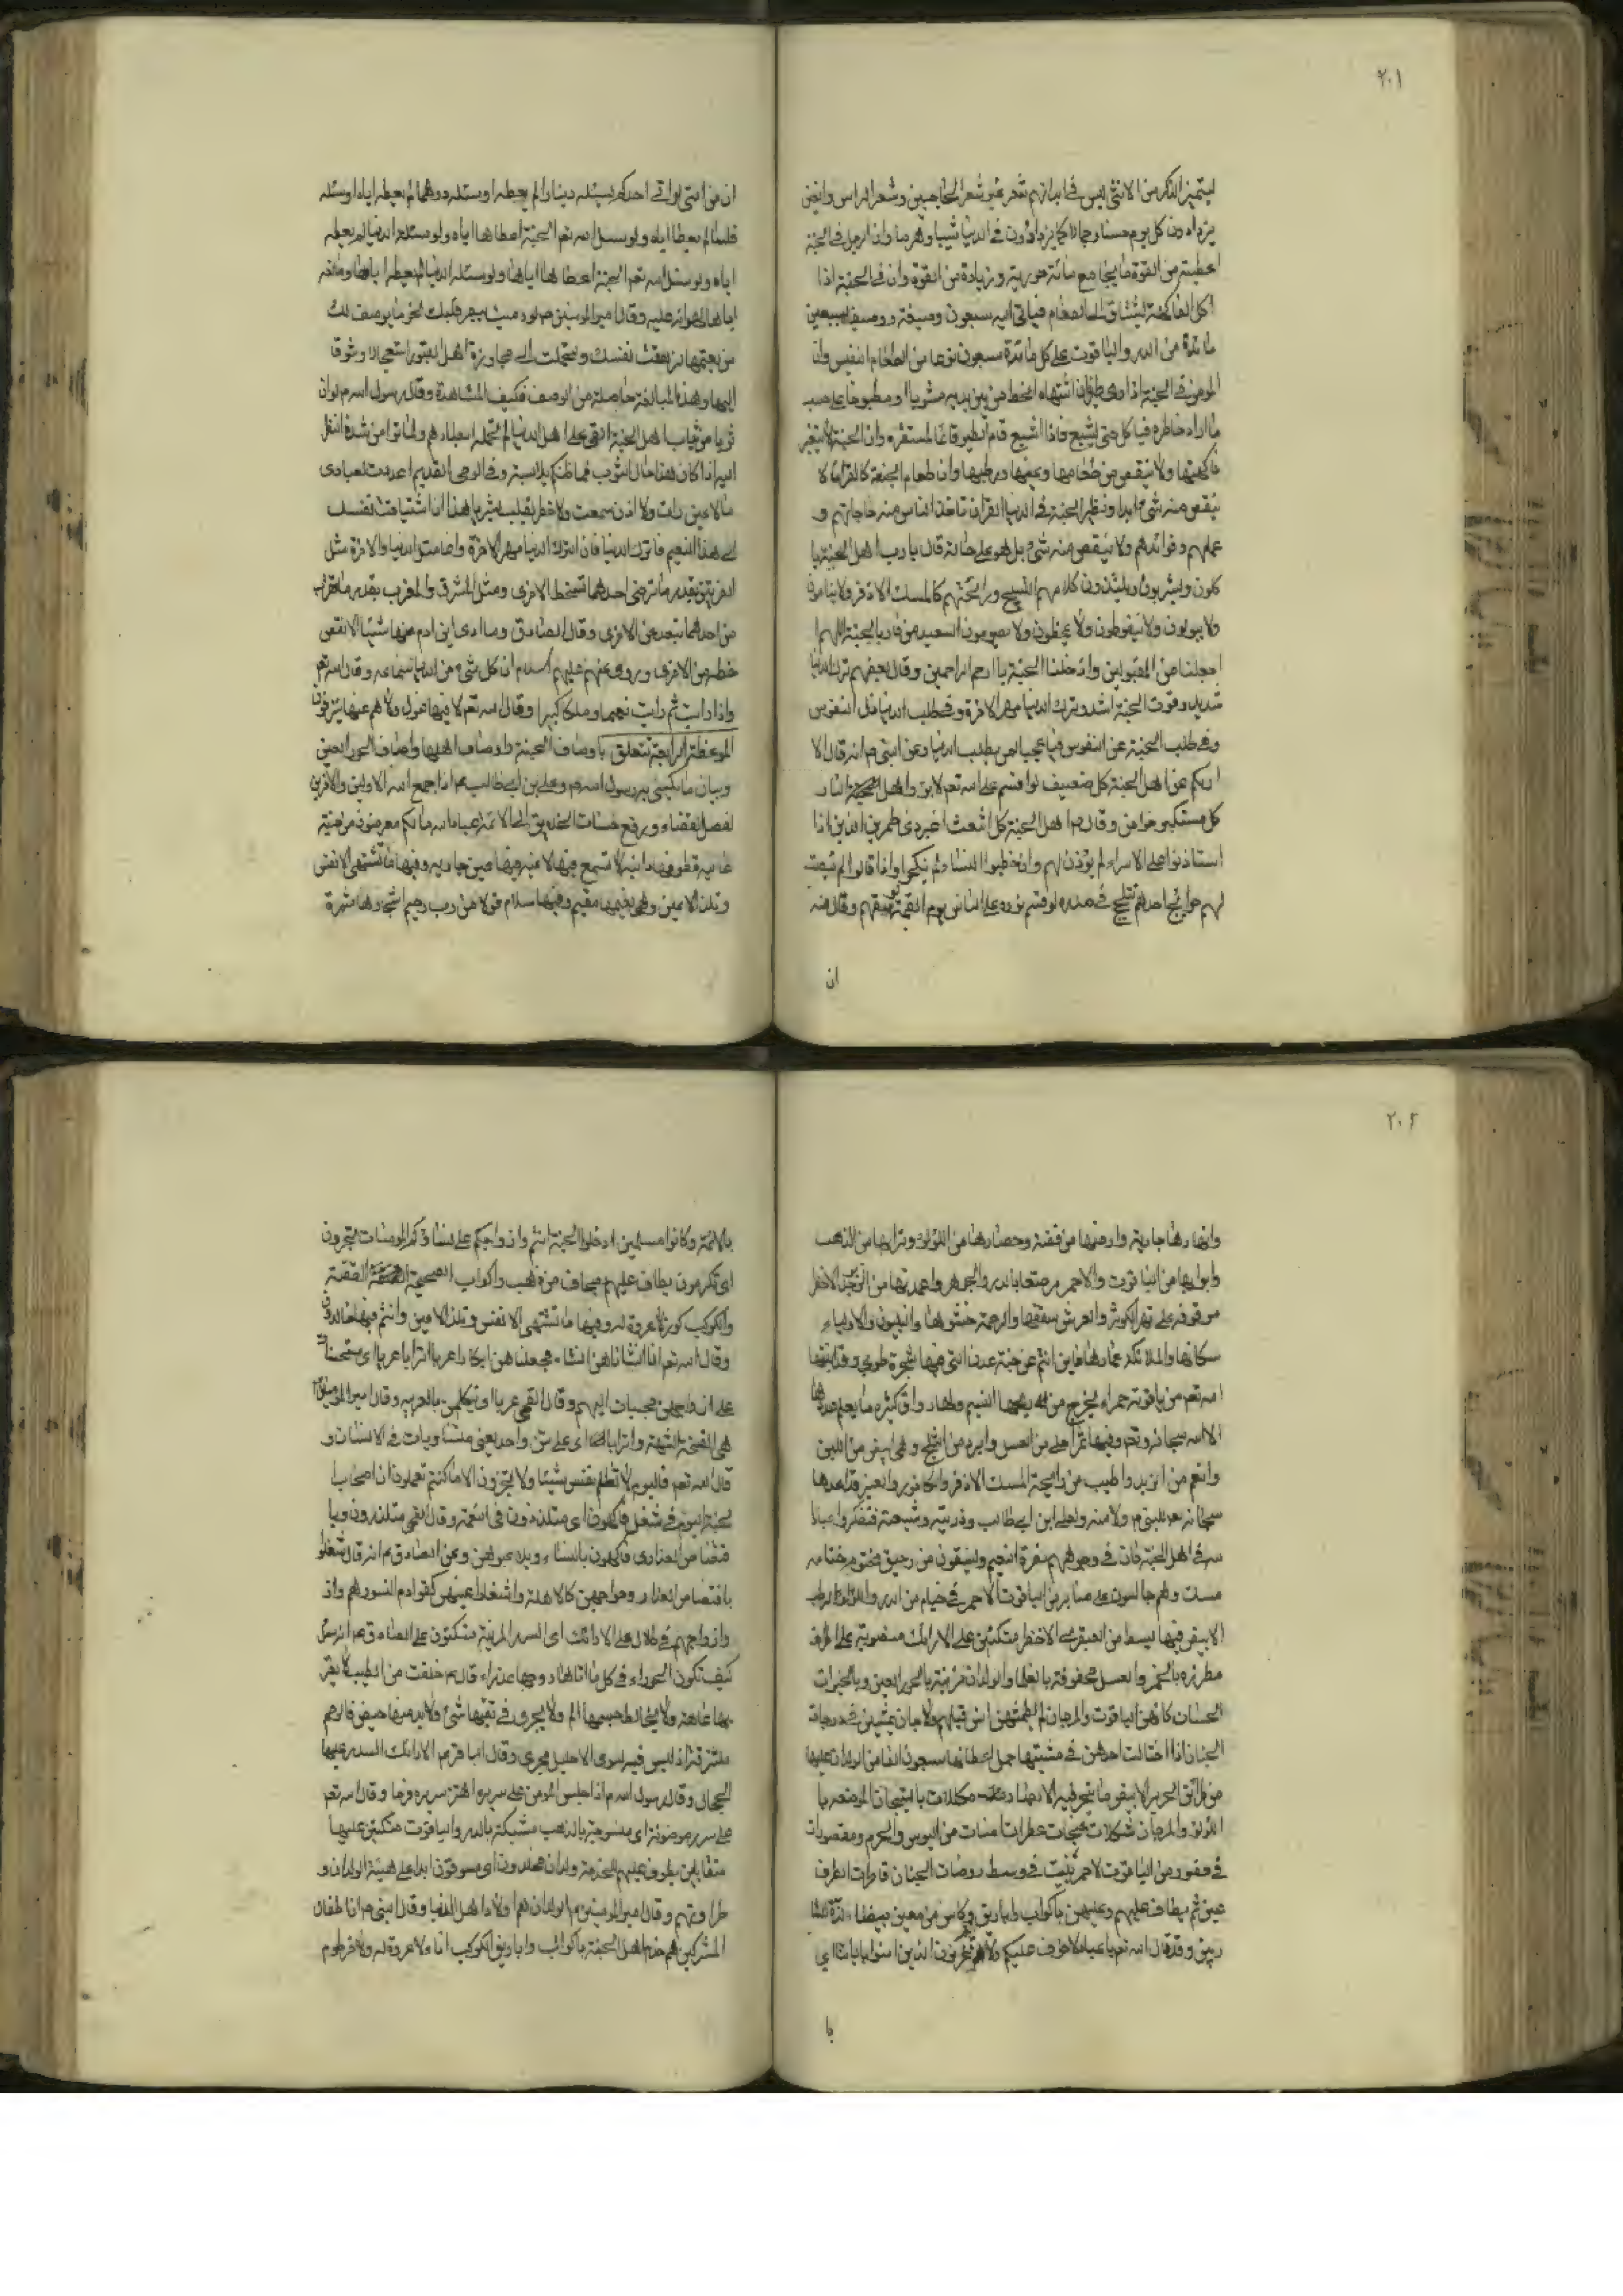 ٢٠١
ليتميز الذكر من الانثى ليس في ابدانهم شعر غير شعر الحاجبين وشعر الراس وانهن
يزدادون كل يوم حسنا وجمالا كما يزدادون في الدنيا شيبا وهرما وان الرجل في الجنة
اعطيته من القوة ما يجامع مائة حورية وزيادة من القوة وان في الجنة اذا
اكل الفاكهة ليشتاق الى الطعام فياتى اليه سبعون وصيفة ووصيفا بسبعين
مائدة من الدر والياقوت على كل مائدة سبعون نوعا من الطعام النفيس وان
المومن في الجنة اذا راى طيرا اشتهاه انحط من بين يديه مشويا او مطبوخا على حسب
ما اراد خاطره فياكل حتى يشبع فاذا اشبع قام الطير قائما لمستقره وان الجنة لا يتغير
فاكهتها ولا ينقص من طعامها وعينها ورطبها وان طعام الجنة كالقران لا
ينقص منه شئ ابدا ونظير الجنة في الدنيا القران تاخذ الناس منه حاجاتهم و
علمهم وفوائدهم ولا ينقص منه شئ بل هو على حاله قال يا رب اهل الجنة يا
كلون ويشربون ويلتذون كلامهم التسبيح ورائحتهم كالمسك الاذفر ولا ينامون
ولا يبولون ولا يتغوطون ولا يمخطون ولا يصومون السعيد من فاز بالجنة اللهم ا
جعلنا من المقبولين وادخلنا الجنة يا ارحم الراحمين وقال بعضهم ترك الدنيا
شديد وفوت الجنة اشد وترك الدنيا مهر الاخرة وفي طلب الدنيا ذل النفوس
وفي طلب الجنة عز النفوس فيا عجبا لمن يطلب الدنيا وعن النبي ص انه قال الا
اريكم عن اهل الجنة كل ضعيف لو اقسم على الله تعم لابر واهل النار
كل مستكبر جواض وقال ص اهل الجنة كل اشعث اغبر ذى طمرين الذين اذا
استاذنوا على الامراء لم يؤذن لهم وان خطبوا النساء لم ينكحوا واذا قالوا لم ينصت
لهم حوايج احدهم تتلجلج في صدره لو قسم نوره على الناس يوم القيمة وقال منه
ان
ان من امتى لو اتى احدكم يسئله دينارا لم يعطه او سئله درهما لم يعطه اياه او سئله
فلسا لم يعط اياه ولو سئل الله تعم الجنة اعطاها اياه ولو سئله الدنيا لم يعطه
اياه ولو سئل الله تعم الجنة اعطاها اياها ولو سئله الدنيا لم يعطه اياها وما منعه
اياها لهوانه عليه وقال امير المومنين ص لو رميت ببصر قلبك نحو ما يوصف لك
من نعيمها لزهقت نفسك ولتحملت الى مجاورة اهل القبور استعجالا وشوقا
اليها وهذا المبالغة حاصلة من الوصف فكيف المشاهدة وقال رسول الله ص لو ان
ثوبا من ثياب اهل الجنة القى على اهل الدنيا لم تحمله ابصارهم ولماتوا من شدة النظر
اليه اذا كان هذا حال الثوب فما ظنكم بلابسه وفي الوحى القديم اعددت لعبادى
ما لا عين رات ولا اذن سمعت ولا خطر بقلب بشر يا هذا ان اشتاقت نفسك
الى هذا النعيم فاترك الدنيا فان ترك الدنيا مهر الاخرة واما مثل الدنيا والاخرة مثل
الضرتين بقدر ما ترضى احدهما تسخط الاخرى ومثل المشرق والمغرب بقدر ما تقرب
من احدهما تبعد عن الاخرى وقال الصادق وما ادى ابن ادم عنها شيئا الا نقص
حظه من الاخرى وروى عنهم عليهم السلام ان كل شئ من الدنيا سماعه وقال الله تعم
واذا رايت ثم رايت نعيما وملكا كبيرا وقال الله تعم لا فيها غول ولا هم عنها ينزفون
الموعظة الرابعة تتعلق باوصاف الجنة واوصاف اهلها واوصاف الحور العين
وبيان ما يكسى به رسول الله ص وعلى بن ابي طالب ع م اذا جمع الله الاولين والاخرين
لفصل القضاء ورفع حسنات الخلايق الى الائمة عباد الله ما لكم معرضون عن جنة
عاليه قطوفها دانيه لا تسمع فيها لاغيه فيها عين جاريه وفيها ما تشتهى الانفس
وتلذ الاعين وهى نعيمها مقيم وفيها سلام قولا من رب رحيم اشجارها مثمرة
٢٠٢
وانهارها جارية وارضها من فضة وحصارها من اللؤلؤ وترابها من الذهب
وابوابها من الياقوت والاحمر مرصعا بالدر والجوهر واعمدتها من الزبرجد الاخضر
موقوفة على نهر الكوثر والعرش سقفها والرحمة حشوها والنبيون والاولياء
سكانها والملائكة عمارها فاين انتم عن جنة عدن التى فيها شجرة طوبى وقد انبتها
الله تعم من ياقوتة حمراء يخرج من يحها النسيم ولها اوراق كثيره ما يعلم عددها
الا الله سبحانه وتعم وفيها ثمر احلى من العسل وابرد من الثلج وهى ابيض من اللبن
وانعم من الزبد واطيب من رايحة المسك الاذفر والكافور والعنبر قد اعدها
سبحانه بعد للنبى ص ولامته ولعلى ابن ابي طالب وذريته وشيعته فتفكروا عباد ا
لله في اهل الجنة فان في وجوههم نضرة النعيم ويسقون من رحيق مختوم ختامه
مسك وهم جالسون على منابر من الياقوت الاحمر في خيام من الدر واللؤلؤ الرطب
الابيض فيها بسط من العبقرى الاخضر متكئين على الارائك منصوبة على اطراف
مطرزه بالخمر والعسل محفوفة بالغلمان والولدان مزينة بالحور العين وبالخيرات
الحسان كانهن الياقوت والمرجان لم يطمثهن انس قبلهم ولا جان يمشين في درجات
الجنان اذا اختالت احدهن في مشيتها حمل اعطافها سبعون الفا من الولدان عليها
من طرائق الحرير الابيض ما يتحير فيه الابصار مكللات بالتيجان المرصعه با
اللؤلؤ والمرجان شكلات غنجات عطرات امنات من البوس والهرم ومقصورات
في قصور من الياقوت الاحمر بنيت في وسط روضات الجنان قاصرات الطرف
عين ثم يطاف عليهم وعليهن باكواب واباريق وكاس من معين بيضاء لذة للشا
ربين وقد قال الله تعم يا عباد لا خوف عليكم ولا هم يحزنون الذين امنوا باياتنا اي
با
بالائمة وكانوا مسلمين ادخلوا الجنة انتم وازواجكم على نساؤكم المومنات تحبرون
اى تكرمون يطاف عليهم صحاف من ذهب واكواب الصحيفة القصعة
والكوكب كوز لا عروة له وفيها ما تشتهى الانفس وتلذ الاعين وانتم فيها خالدون
وقال الله تعم انا انشاناهن انشاء فجعلناهن ابكارا عربا اترابا عربا اى متحننات
على ازواجهن محببات اليهم وقال القمى عربا او يتكلمن بالعربيه وقال امير المومنين
هى الغنجة الشهية واترابا اى على سن واحد يعنى متساويات في الاسنان و
قال الله تعم فاليوم لا تظلم نفس شيئا ولا تجزون الا ما كنتم تعملون ان اصحاب ا
لجنة اليوم في شغل فاكهون اى متلذذون في النعمة وقال القمى متلذذون ويا
فتضاض العذارى فاكهون بالنساء ويلاعبوهن وعن الصادق ع م انه قال شغلوا
بافتضاض العذارى وحواجبهن كالاهلة واشفار اعينهن كقوادم النسور هم واز
وازواجهم في ظلال على الارائك اى السرر المزينة متكئون على الصادق ع م انه سئل
كيف تكون الحوراء في كل ما اتاها زوجها عذراء قال ص خلقت من الطيب لا يعتر
بها عاهة ولا يخالط جسمها الم ولا يجرى في ثقبها شئ ولا يدنسها حيض فالرحم
ملتزقة اذ ليس فيه لسوى الاحليل مجرى وقال الباقر ع م الارائك السرر عليها
الحجال وقال رسول الله م اذا جلس المومن على سريره اهتز سريره فرحا وقال الله تعم
على سرر موضونة اى منسوجة بالذهب مشبكة بالدر والياقوت متكئين عليها
متقابلين يطوف عليهم للخدمة ولدان مخلدون اى مسوقون ابدا على هيئة الولدان و
طراوتهم وقال امير المومنين م الولدان هم اولاد اهل الدنيا وقال النبى ص ان اطفال
المشركين هم خدم اهل الجنة باكواب واباريق الكوكب انا ولا عروة له ولا خرطوم